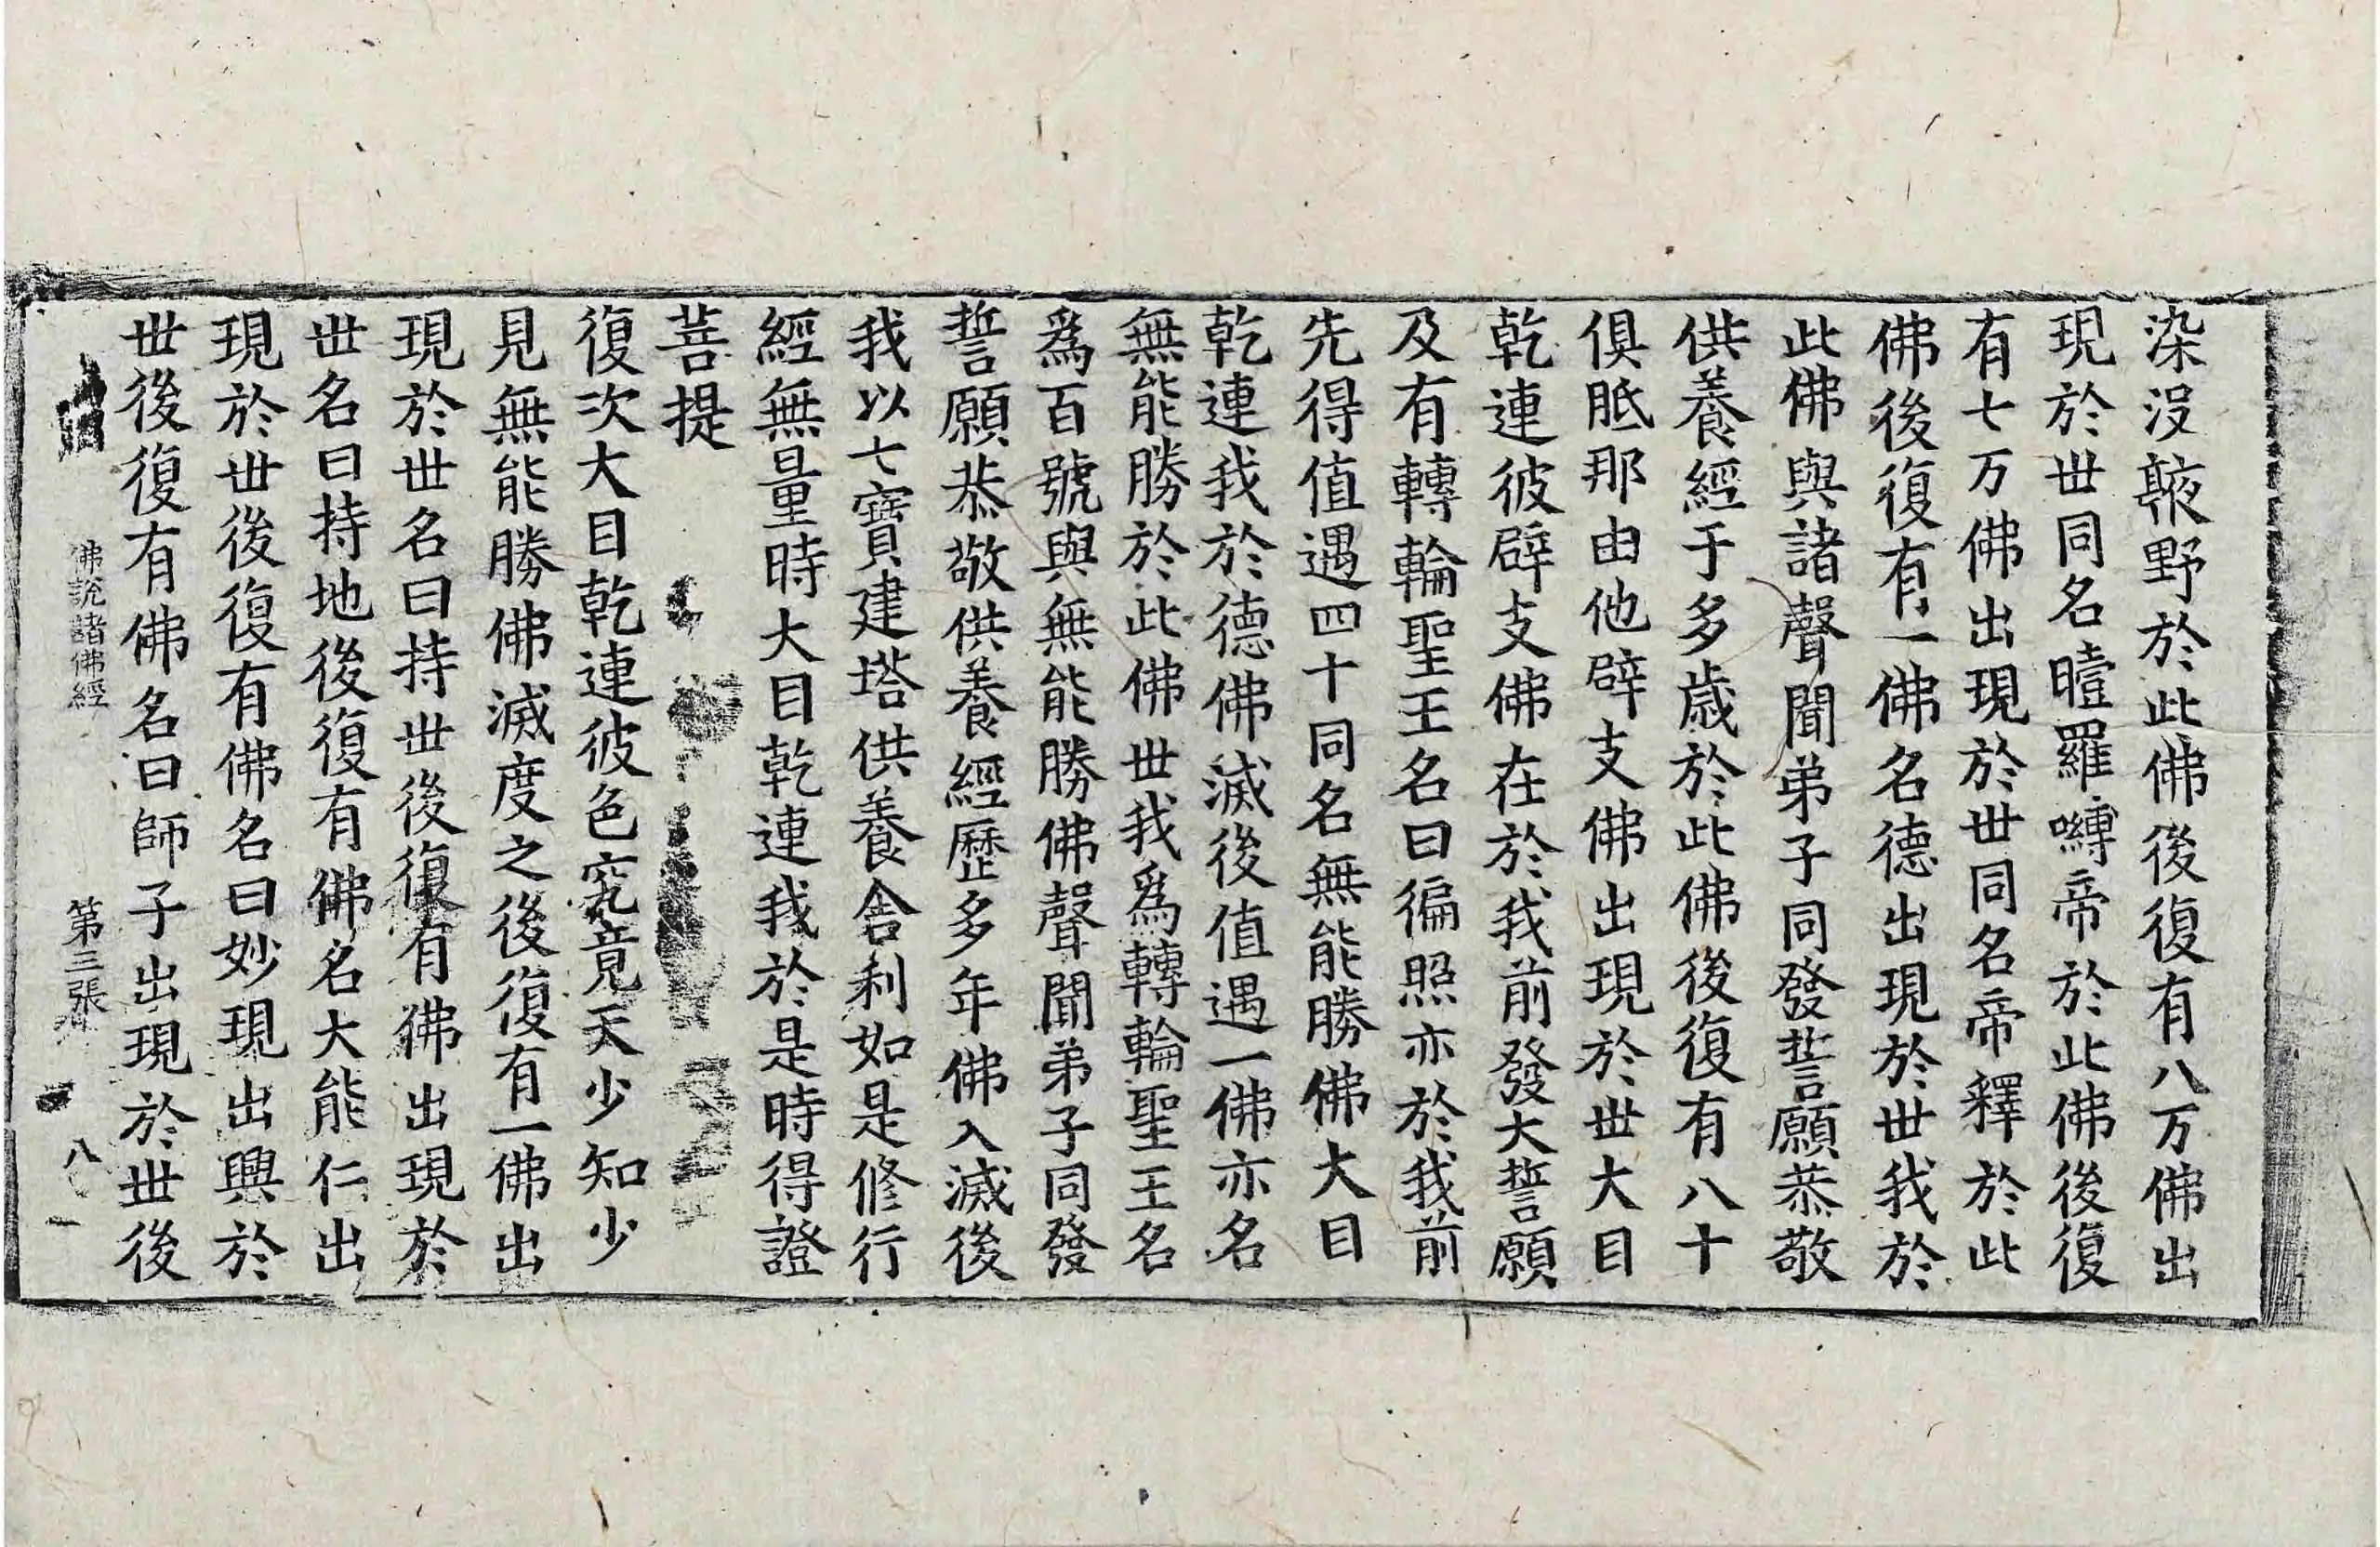 染沒蔽野於此佛後復有八万佛出
現於丗同名曀羅嚩帝於此佛後復
有七万佛出現於丗同名帝釋於此
佛後復有一佛名德出現於丗我於
此佛與諸聲聞弟子同發誓願恭敬
供養經于多歲於此佛後復有八十
俱胝那由他辟支佛出現於丗大目
乾連彼辟支佛在於我前發大誓願
及有轉輪聖王名曰徧照亦於我前
先得值遇四十同名無能勝佛大目
乾連我於德佛滅後值遇一佛亦名
無能勝於此佛丗我爲轉輪聖王名
爲百號與無能勝佛聲聞弟子同發
誓願恭敬供養經歷多年佛入滅後
我以七寶建塔供養舍利如是修行
經無量時大目乾連我於是時得證
菩提
復次大目乾連彼色究竟天少知少
見無能勝佛滅度之後復有一佛出
現於丗名曰持丗後復有佛出現於
丗名曰持地後復有佛名大能仁出
現於丗後復有佛名曰妙現出興於
丗後復有佛名曰師子出現於丗後
佛說諸佛經 第三張 八